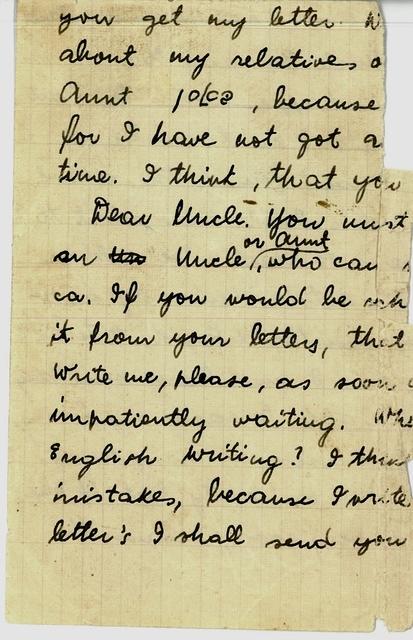 you get my letter.
about my relatives
Aunt , because
for I have not got a
time. I think, that you
Dear Uncle. You must
or Aunt
an Uncle, who can
ca. If you would be
it from your letters, that
Write me, please, as soon
impatiently waiting.
English writing? I think
mistakes, because I write
letter's I shall send you